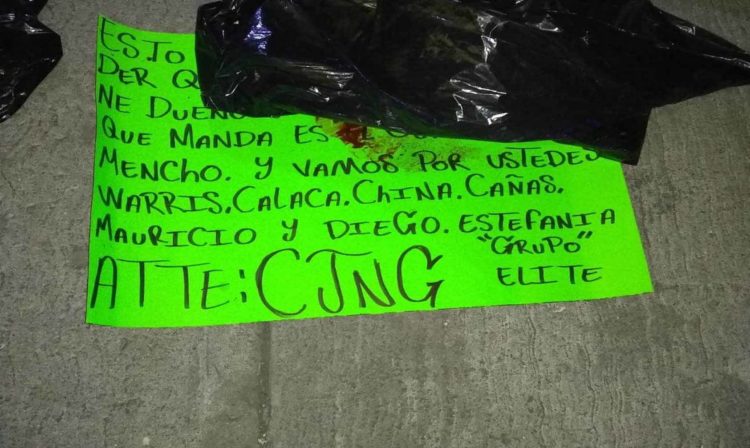 ESTO
DER Q
NE DUEÑO
QUE MANDA ES
MENCHO. Y VAMOS POR USTEDES
WARRIS. CALACA. CHINA. CAÑAS.
MAURICIO Y DIEGO. ESTEFANIA
ATTE: CJNG "GRUPO"
ELITE